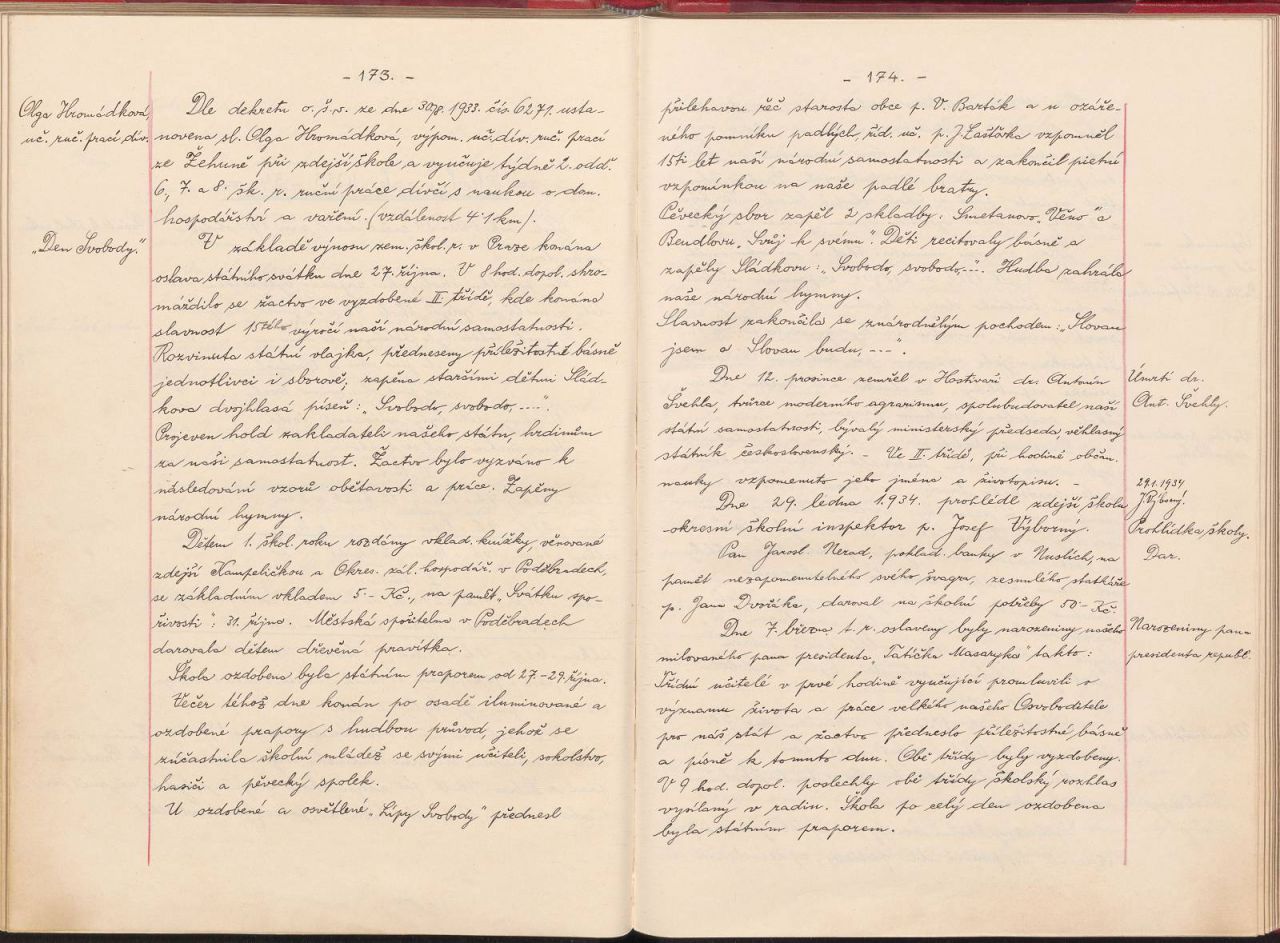 - 173. -
Olga Hromádková,
uč. ruč. prací dív.
Dle dekretu o. š. v. ze dne 1933. čís. 6271. usta-
novena sl. Olga Hromádková, výpom. uč. dív. ruč. prací
ze Žehuně při zdejší škole a vyučuje týdně 2. odd.
6., 7. a 8. šk. r. ruční práce dívčí s naukou o dom.
hospodářství a vaření. (vzdálenost 4·1 km).
"Den Svobody."
V základě výnosu zem. škol. r. v Praze konána
oslava státního svátku dne 27. října. V 8 hod. dopol. shro-
máždilo se žactvo ve vyzdobené II. třídě, kde konána
slavnost 15tého výročí naší národní samostatnosti.
Rozvinuta státní vlajka, předneseny příležitostné básně
jednotlivci i sborově, zapěna staršími dětmi Slád-
kova dvojhlasá píseň: „Svobodo, svobodo, -–-".
Projeven hold zakladateli našeho státu, hrdinům
za naši samostatnost. Žactvo bylo vyzváno k
následování vzorů obětavosti a práce. Zapěny
národní hymny.
Dětem 1. škol. roku rozdány vklad. knížky, věnované
zdejší Kampeličkou a Okres. zál. hospodář. v Poděbradech,
se základním vkladem 5·- Kč., na paměť „Svátku spo-
řivosti": 31. října. Městská spořitelna v Poděbradech
darovala dětem dřevěná pravítka.
Škola ozdobena byla státním praporem od 27-29. října.
Večer téhož dne konán po osadě iluminované a
ozdobené prapory s hudbou průvod, jehož se
zúčastnila školní mládež se svými učiteli, sokolstvo,
hasiči a pěvecký spolek.
U ozdobené a osvětlené „Lípy Svobody" přednesl
- 174. -
přilehavou řeč starosta obce p. V. Barták a u ozáře-
ného pomníku padlých, říd. uč. p. J. Laštůvka vzpomněl
15ti let naší národní samostatnosti a zakončil pietní
vzpomínkou na naše padlé bratry.
Pěvecký sbor zapěl 2 skladby: Smetanovo „Věno" a
Bendlovu „Svůj k svému". Děti recitovaly básně a
zapěly Sládkovu: „Svobodo, svobodo, -–-". Hudba zahrála
naše národní hymny.
Slavnost zakončila se znárodnělým pochodem: „Slovan
jsem a Slovan budu, -–-".
Dne 12. prosince zemřel v Hostivaři dr. Antonín
Švehla, tvůrce moderního agrarismu, spolubudovatel naší
státní samostatnosti, bývalý ministerský předseda, věhlasný
státník československý. - Ve II. třídě, při hodině občan.
nauky vzpomenuto jeho jména a životopisu. -
Úmrtí dr.
Ant. Švehly.
Dne 29. ledna 1934. prohlédl zdejší školu
okresní školní inspektor p. Josef Výborný.
29.1.1934
J. Výborný.
Prohlídka školy.
Pan Jarosl. Nerad, poklad. banky v Nuslích, na
paměť nezapomenutelného svého švagra, zesnulého statkáře
p. Jana Dvořáka, daroval na školní potřeby 50·- Kč.
Dar.
Dne 7. března t. r. oslaveny byly narozeniny našeho
milovaného pana presidenta „Tatíčka Masaryka" takto:
Narozeniny pana
presidenta republ.
Třídní učitelé v prvé hodině vyučující promluvili o
významu života a práce velkého našeho Osvoboditele
pro náš stát a žactvo předneslo příležitostné básně
a písně k tomuto dnu. Obě třídy byly vyzdobeny.
V 9 hod. dopol. poslechly obě třídy školský rozhlas
vysílaný v radiu. Škola po celý den ozdobena
byla státním praporem.